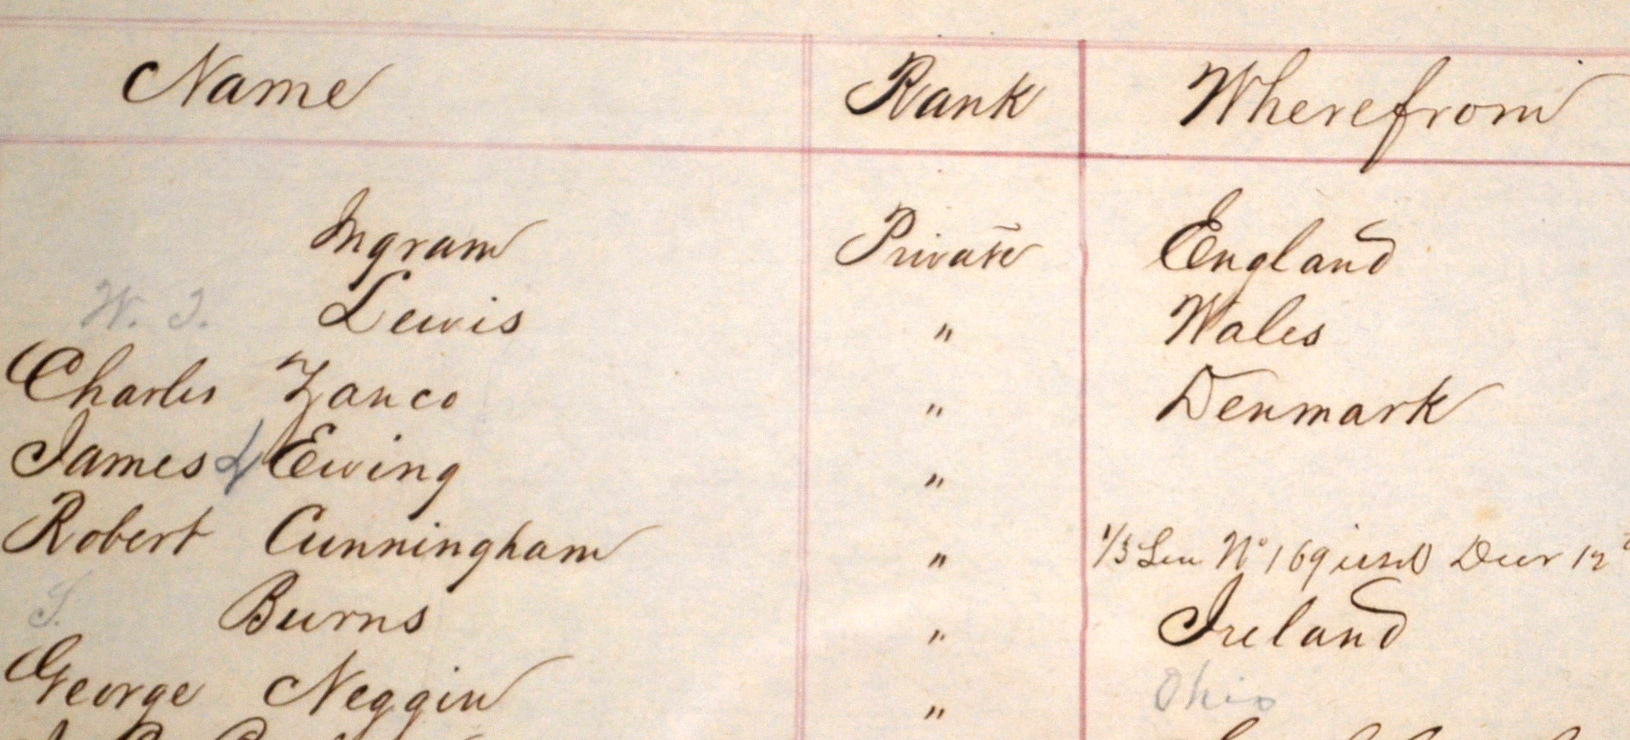 Name Rank Wherefrom
Ingram Private England
W. J. Lewis " Wales
Charles Zanco " Denmark
James L Ewing "
Robert Cunningham " 1/3 Lea. No 169 issd Decr 12
S. Burns " Ireland
George Neggin " Ohio